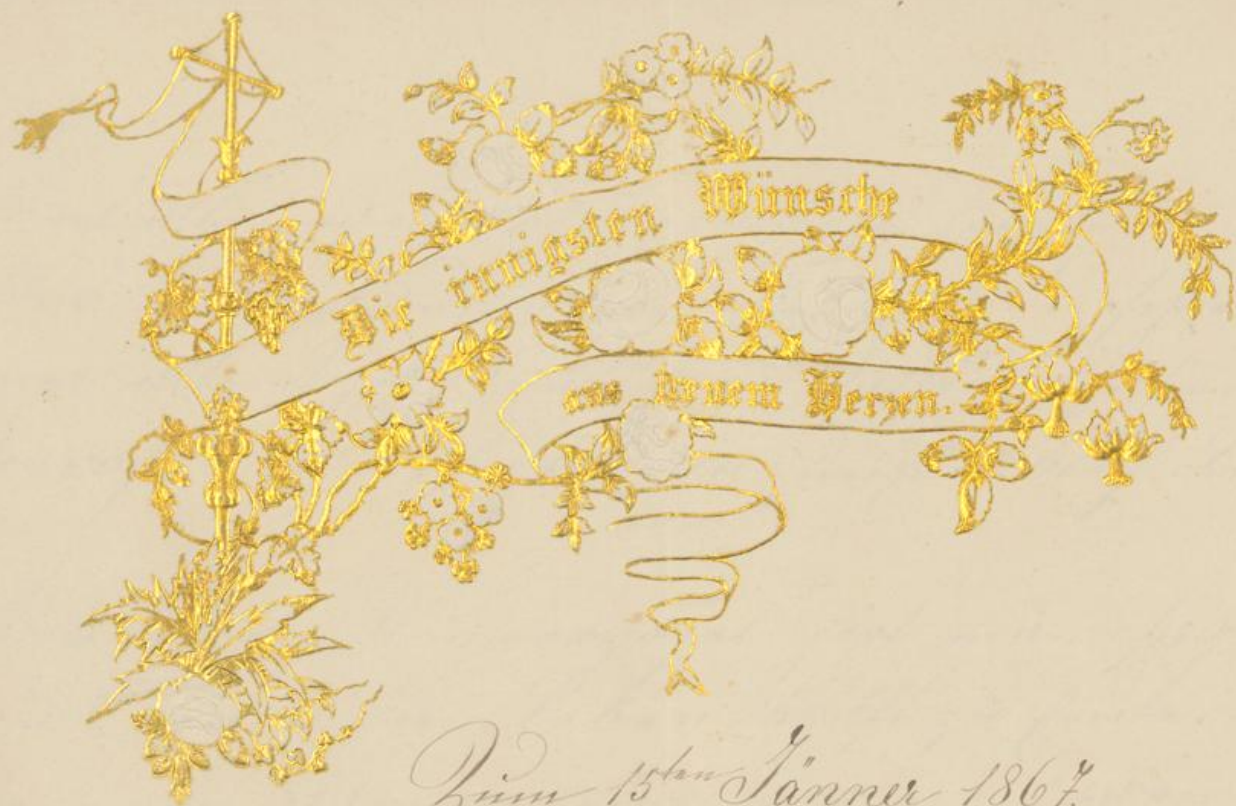 Die innigsten Wünsche
aus treuem Herzen.
Zum 15ten Jänner 1867